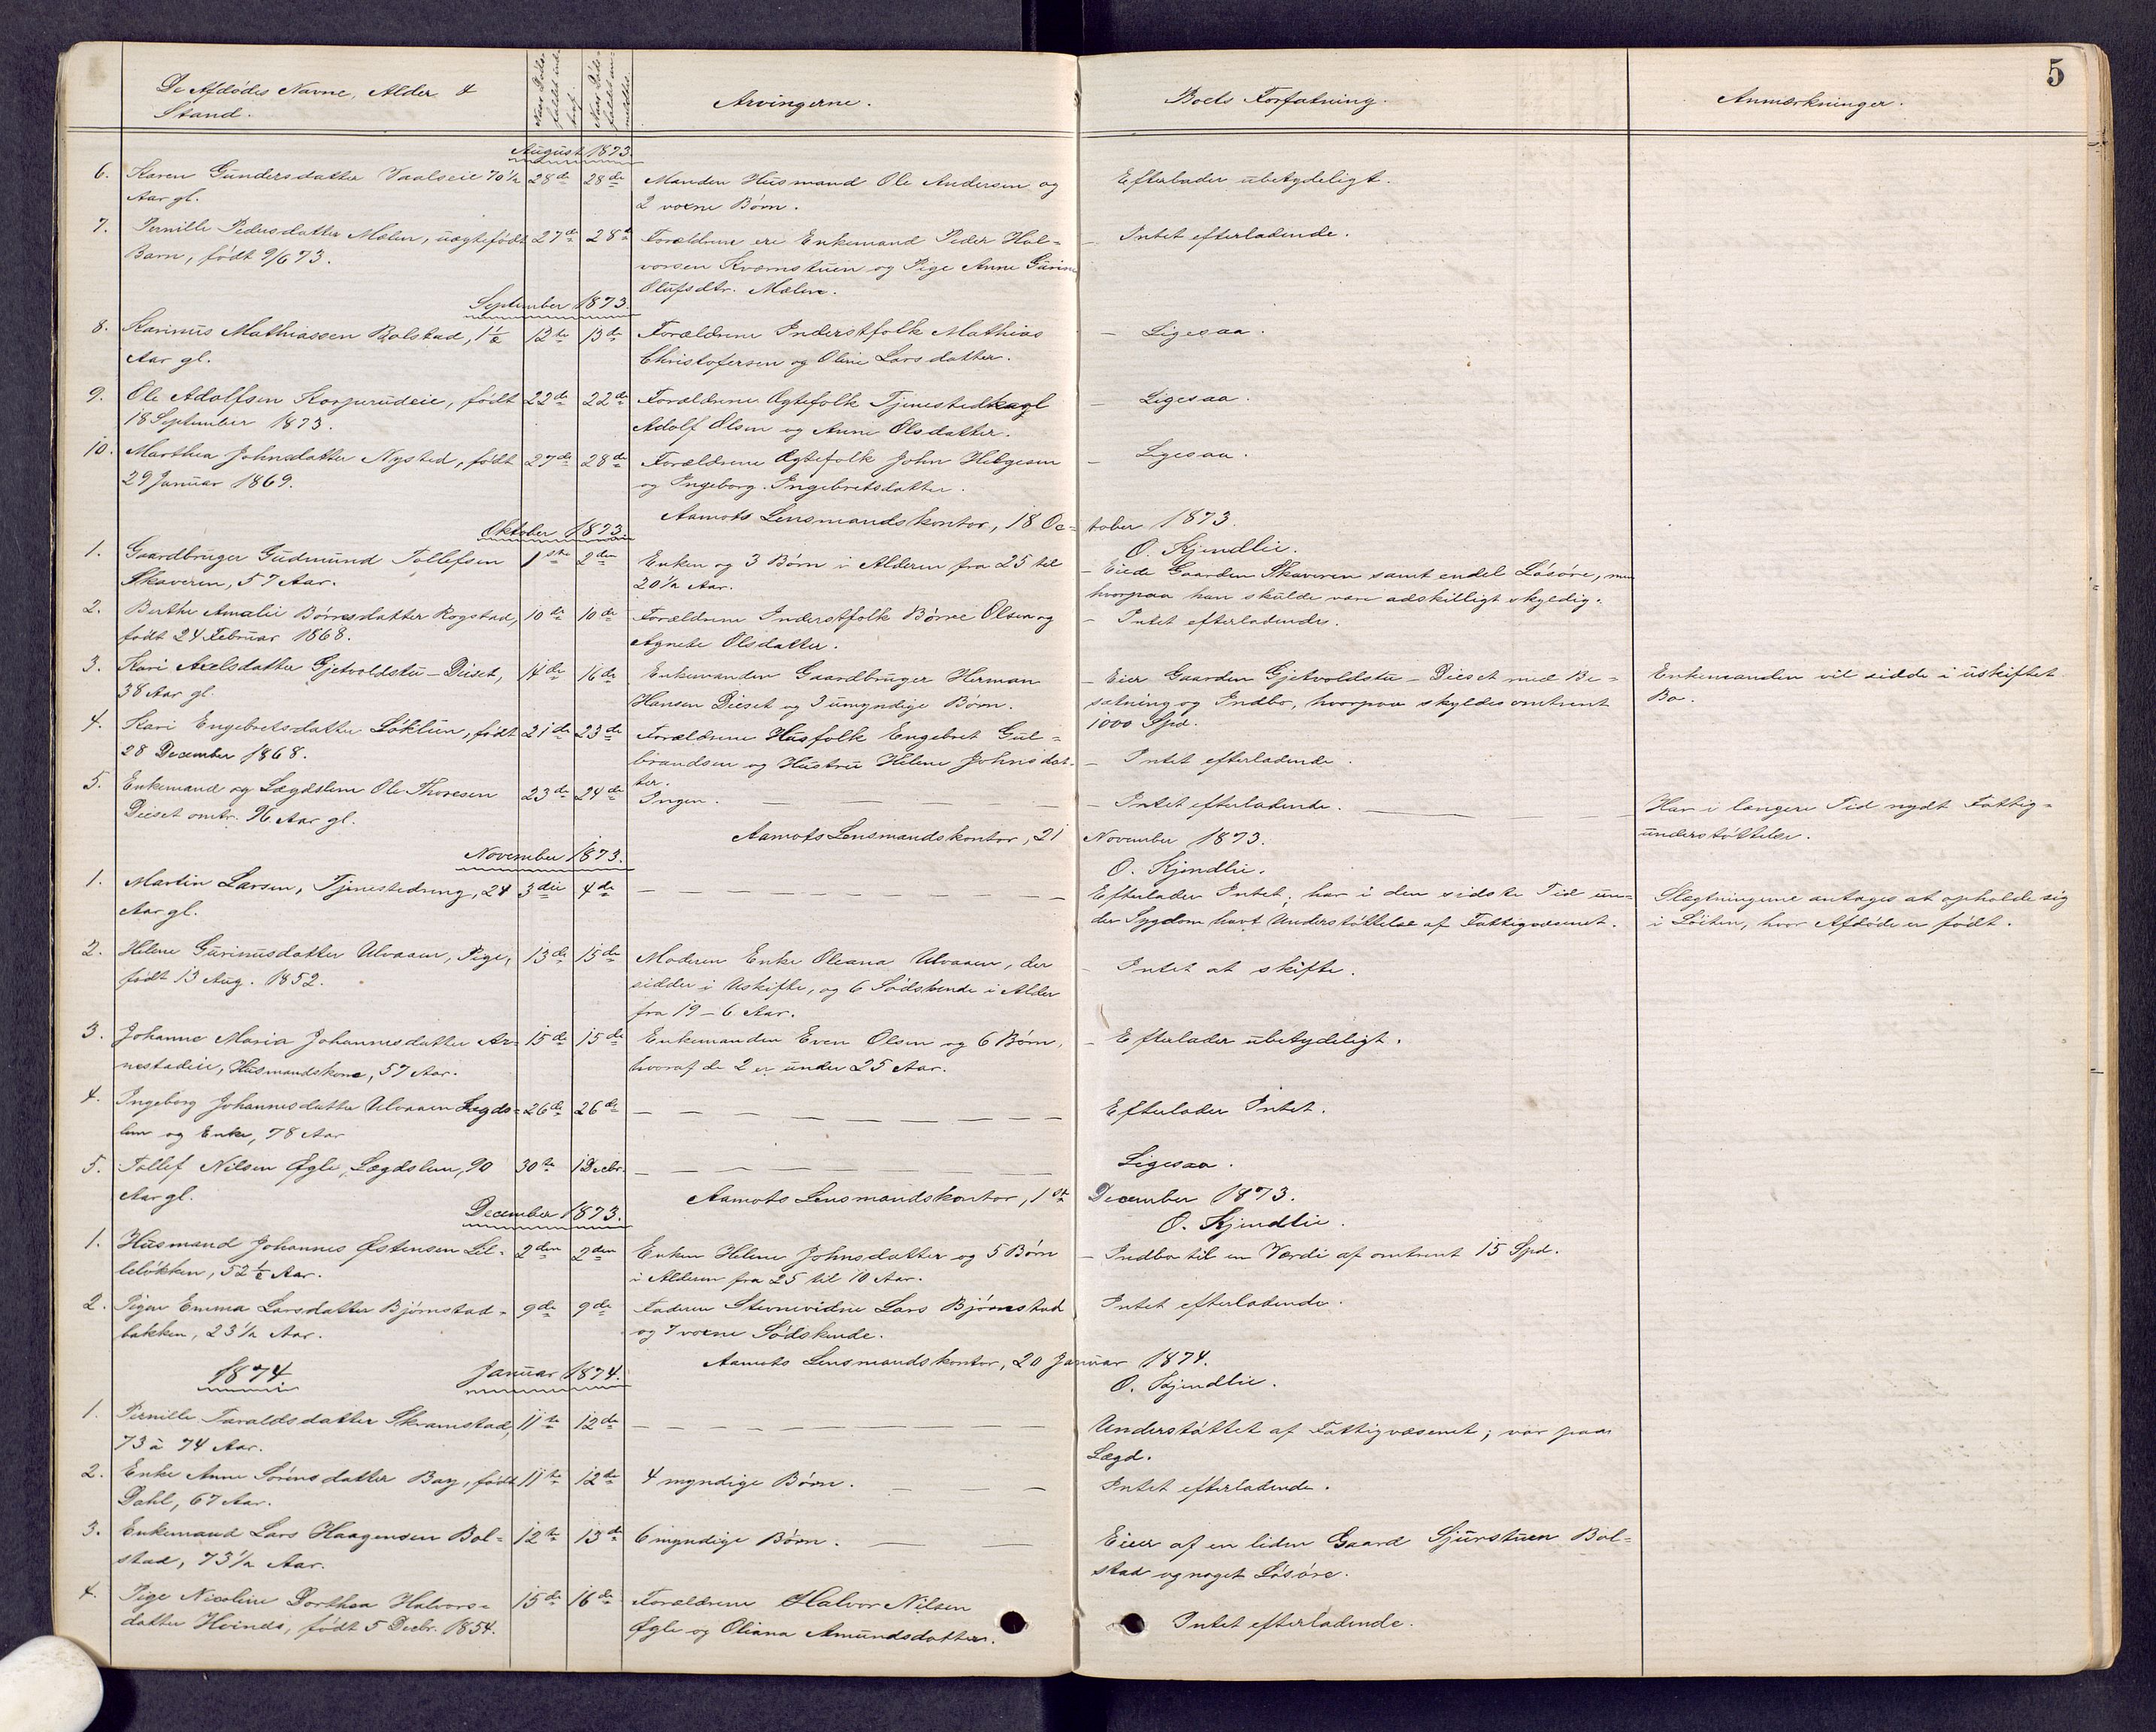 5
De Afdødes Navne, Alder &
Stand.
Naar Døds-
faldet ind-
traf.
Naar Døds-
faldet an-
meldtes.
Arvingerne.
Boets Forfatning.
Anmærkninger.
August 1873.
6. Karen Gundersdatter Vaalseie 70 1/2 28de 28de Manden Husmand Ole Andersen og Efterlader ubetydeligt.
Aar gl. 2 voxne Børn.
7. Pernille Pedersdatter Mælen, uægtefødt 27de 28de Forældrene ere Enkemand Peder Hal= – Intet efterladende.
Barn, født 9/6 73. vorsen Kværnstuen og Pige Anne Gurine
Olufsdtr. Mælen.
September 1873.
8. Karinus Mathiassen Bolstad, 1 1/2 12te 13de Forældrene Inderstfolk Mathias – Ligesaa.
Aar gl. Christofersen og Oline Larsdatter.
9. Ole Adolfsen Korperudeie, født 22de 22de Forældrene Ægtefolk Tjenestedkarl – Ligesaa.
18 September 1873. Adolf Olsen og Anne Olsdatter.
10. Marthea Johnsdatter Nysted, født 27de 28de Forældrene Ægtefolk John Helgesen – Ligesaa.
29 Januar 1869. og Ingeborg Ingebretsdatter.
Aamots Lensmandskontor, 18 Oc= tober 1873.
O. Kjendlie.
Oktober 1873.
1. Gaardbruger Gudmund Tollefsen 1ste 2den Enken og 3 Børn i Alderen fra 25 til – Eiede Gaarden Skaveren samt endel Løsøre, men
Skaveren, 57 Aar. 20 1/2 Aar. hvorpaa han skulde være adskilligt skyldig.
2. Berthe Amalie Børresdatter Rogstad, 10de 10de Forældrene Inderstfolk Børre Olsen og – Intet efterladende.
født 24 Februar 1868. Agnete Olsdatter.
3. Kari Axelsdatter Gjetvoldstu – Deiset, 14de 16de Enkemanden Gaardbruger Herman – Eier Gaarden Gjetvoldstu – Deiset med Be= Enkemanden vil sidde i uskiftet
38 Aar gl. Hansen Deiset og 3 umyndige Børn. sætning og Indbo, hvorpaa skyldes omtrent Bo.
1000 Spd.
4. Kari Engebretsdatter Løktun, født 21de 23de Forældrene Husfolk Engebret Gul=
28 December 1868. brandsen og Hustru Helene Johnsdat= – Intet efterladende.
ter.
5. Enkemand og Lægdslem Ole Thoresen 23de 24de Ingen. – Intet efterladende. Har i længere Tid nydt Fattig=
Deiset omtr. 76 Aar gl. understøttelse.
Aamots Lensmandskontor, 21 November 1873.
O. Kjendlie.
November 1873.
1. Martin Larsen, Tjenestedreng, 24 3die 4de Efterlader Intet; har i den sidste Tid un= Slægtningene antages at opholde sig
Aar gl. der Sygdom havt Understøttelse af Fattigvæsenet. i Løiten, hvor Afdøde er født.
2. Helene Gurinusdatter Ulvaaen, Pige, 13de 15de Moderen Enke Oleana Ulvaaen, der – Intet at skifte.
født 13 Aug. 1852. sidder i Uskifte, og 6 Sødskende i Alder
fra 19 – 6 Aar.
3. Johanne Maria Johannesdatter Ar= 15de 15de Enkemanden Even Olsen og 6 Børn, – Efterlader ubetydeligt.
nestadeie, Husmandskone, 57 Aar. hvoraf de 2 er under 25 Aar.
4. Ingeborg Johannesdatter Ulvaaen Lægds= 26de 26de Efterlader Intet.
lem og Enke, 78 Aar
5. Tollef Nilsen Øgle, Lægdslem, 90 30te 1 Decbr. Ligesaa.
Aar gl. Aamots Lensmandskontor, 1ste December 1873.
O. Kjendlie.
December 1873.
1. Husmand Johannes Østensen Lil= 2den 2den Enken Helene Johnsdatter og 5 Børn – Indbo til en Værdi af omtrent 15 Spd.
leløkken, 52 1/2 Aar. i Alderen fra 25 til 10 Aar.
2. Pigen Emma Larsdatter Bjørnstad= 9de 9de Faderen Stevnevidne Lars Bjørnstad Intet efterladende.
bakken, 23 1/2 Aar. og 7 voxne Sødskende.
Aamots Lensmandskontor, 20 Januar 1874.
O. Kjendlie.
1874
Januar 1874.
1. Pernille Taraldsdatter Skramstad, 11te 12de Understøttet af Fattigvæsenet; var paa
73 à 74 Aar. Lægd.
2. Enke Anne Sørensdatter Bay, født 11te 12de 4 myndige Børn. Intet efterladende.
Dahl, 67 Aar.
3. Enkemand Lars Haagensen Bol= 12te 13de 6 myndige Børn. Eier af en liden Gaard Sjurstuen Bol=
stad, 73 1/2 Aar. stad og noget Løsøre.
4. Pige Nicoline Dorthea Halvors= 15de 16de Forældrene Halvor Nilsen Intet efterladende.
datter Hvinds, født 5 Decbr. 1854. Øgle og Oliana Amundsdatter.